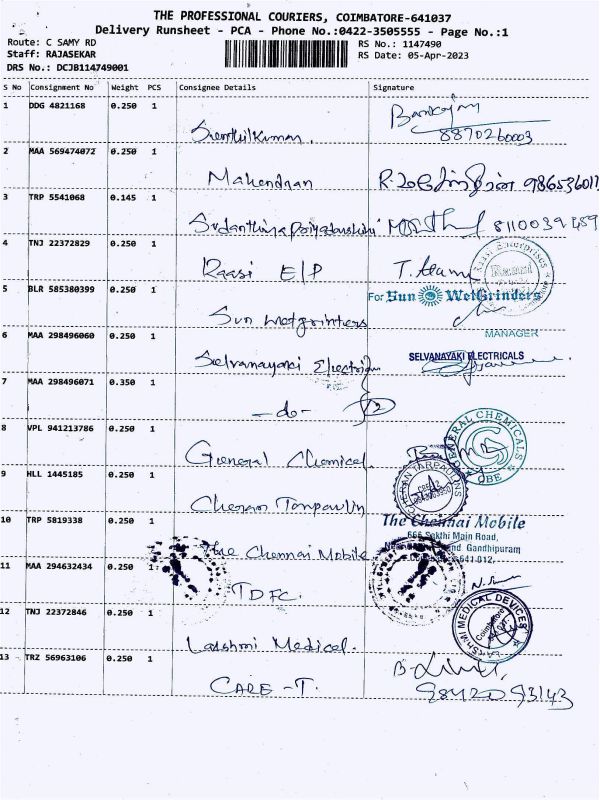 THE PROFESSIONAL COURIERS, COIMBATORE-641037
Delivery Runsheet - PCA - Phone No.:0422-3505555 - Page No.:1
Route: C SAMY RD
RS No.: 1147490
Staff: RAJASEKAR
RS Date: 05-Apr-2023
DRS No.: DCJB114749001
S No Consignment No Weight PCS Consignee Details Signature
1 DDG 4821168 0.250 1
Senthilkumar. 8870260003
2 MAA 569474072 0.250 1
Mahendran
3 TRP 5541068 0.145 1
4 TNJ 22372829 0.250 1
Raasi E/P
5 BLR 585380399 0.250 1
For Sun WetGrinders
Sun wetgrinters
MANAGER
6 MAA 298496060 0.250 1
SELVANAYAKI ELECTRICALS
Selvanayaki
7 MAA 298496071 0.350 1
- do -
8 VPL 941213786 0.250 1
GENERAL CHEMICALS CBE
General Chemical.
9 HLL 1445185 0.250 1
Cheran Tarpaulin
10 TRP 5819338 0.250 1
The Chennai Mobile
666 Sakthi Main Road,
Gandhipuram
The Chennai Mobile
641 012.
11 MAA 294632434 0.250 1
TDFC.
12 TNJ 22372846 0.250 1
MEDICAL DEVICES
Coimbatore
Lakshmi Medical.
13 TRZ 56963106 0.250 1
CARE - T.
9842093143